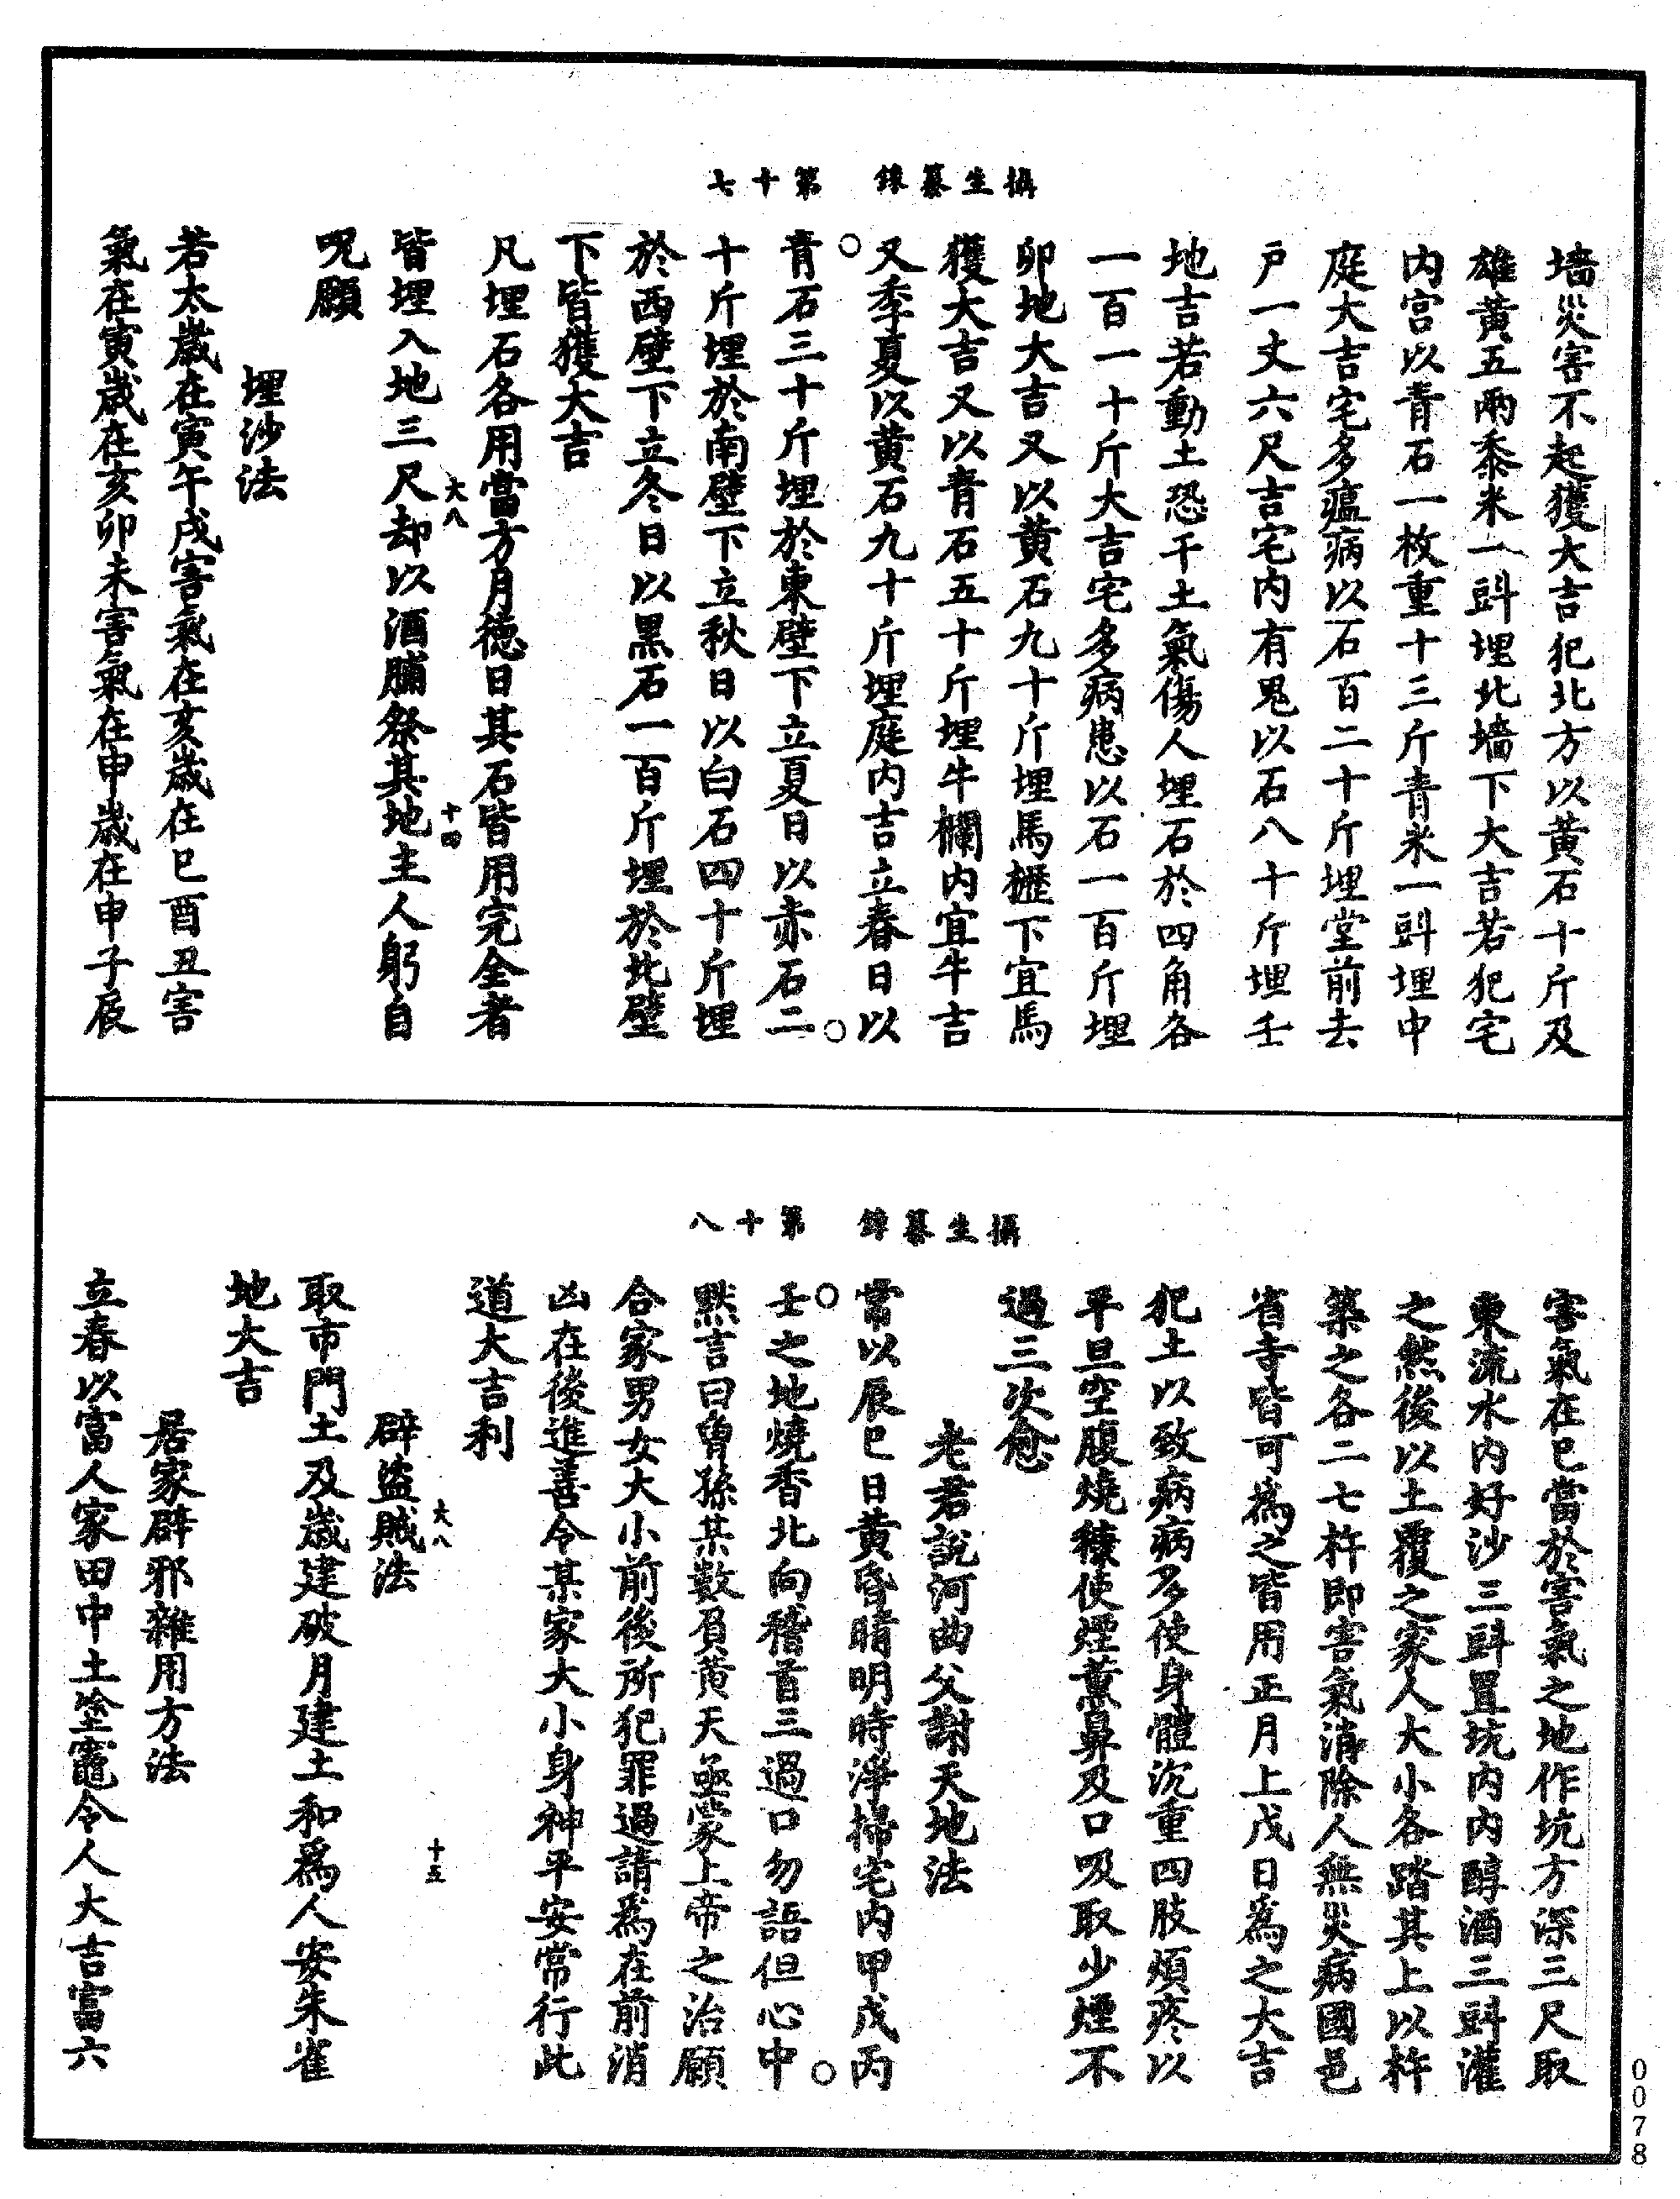 攝生纂錄　第十七
墻災害不起獲大吉犯北方以黃石十斤及
雄黃五兩黍米一㪷埋北墻下大吉若犯宅
內宫以青石一枚重十三斤青米一㪷埋中
庭大吉宅多瘟病以石百二十斤埋堂前去
戸一丈六尺吉宅内有鬼以石八十斤埋壬
地吉若動土恐干土氣傷人埋石於四角各
一百一十斤大吉宅多病患以石一百斤埋
卯地大吉又以黄石九十斤埋馬櫪下宜馬
獲大吉又以青石五十斤埋牛欄内宜牛吉
又季夏以黄石九十斤埋庭内吉立春日以
青石三十斤埋於東壁下立夏日以赤石二
十斤埋於南壁下立秋日以白石四十斤埋
於西壁下立冬日以黑石一百斤埋於北壁
下皆獲大吉
凡埋石各用當方月德日其石皆用完全者
大八　十四
皆埋入地三尺却以酒脯祭其地主人躬自
呪願
埋沙法
若太歲在寅午戌害氣在亥歲在巳酉丑害
氣在寅歲在亥卯未害氣在申歲在申子辰
攝生纂錄　第十八
害氣在巳當於害氣之地作坑方深三尺取
東流水内好沙三㪷置坑内内醇酒三㪷灌
之然後以土覆之家人大小各踏其上以杵
築之各二七杵即害氣消除人無災病國邑
省寺皆可為之皆用正月上戊日為之大吉
犯土以致病病多使身體沉重四肢煩疼以
平旦空腹燒糠使煙薰鼻及口吸取少煙不
過三次愈
老君說河曲父謝天地法
常以辰巳日黄昏晴明時淨掃宅内甲戊丙
壬之地燒香北向稽首三過口勿語但心中
黙言曰曾孫某數負黄天亟蒙上帝之治願
合家男女大小前後所犯罪過請為在前消
凶在後進善令某家大小身神平安常行此
道大吉利
辟盜賊法
大八　十五
取市門土及歲建破月建土和為人安朱雀
地大吉
居家辟邪雜用方法
立春以富人家田中土塗竈令人大吉富六
0078